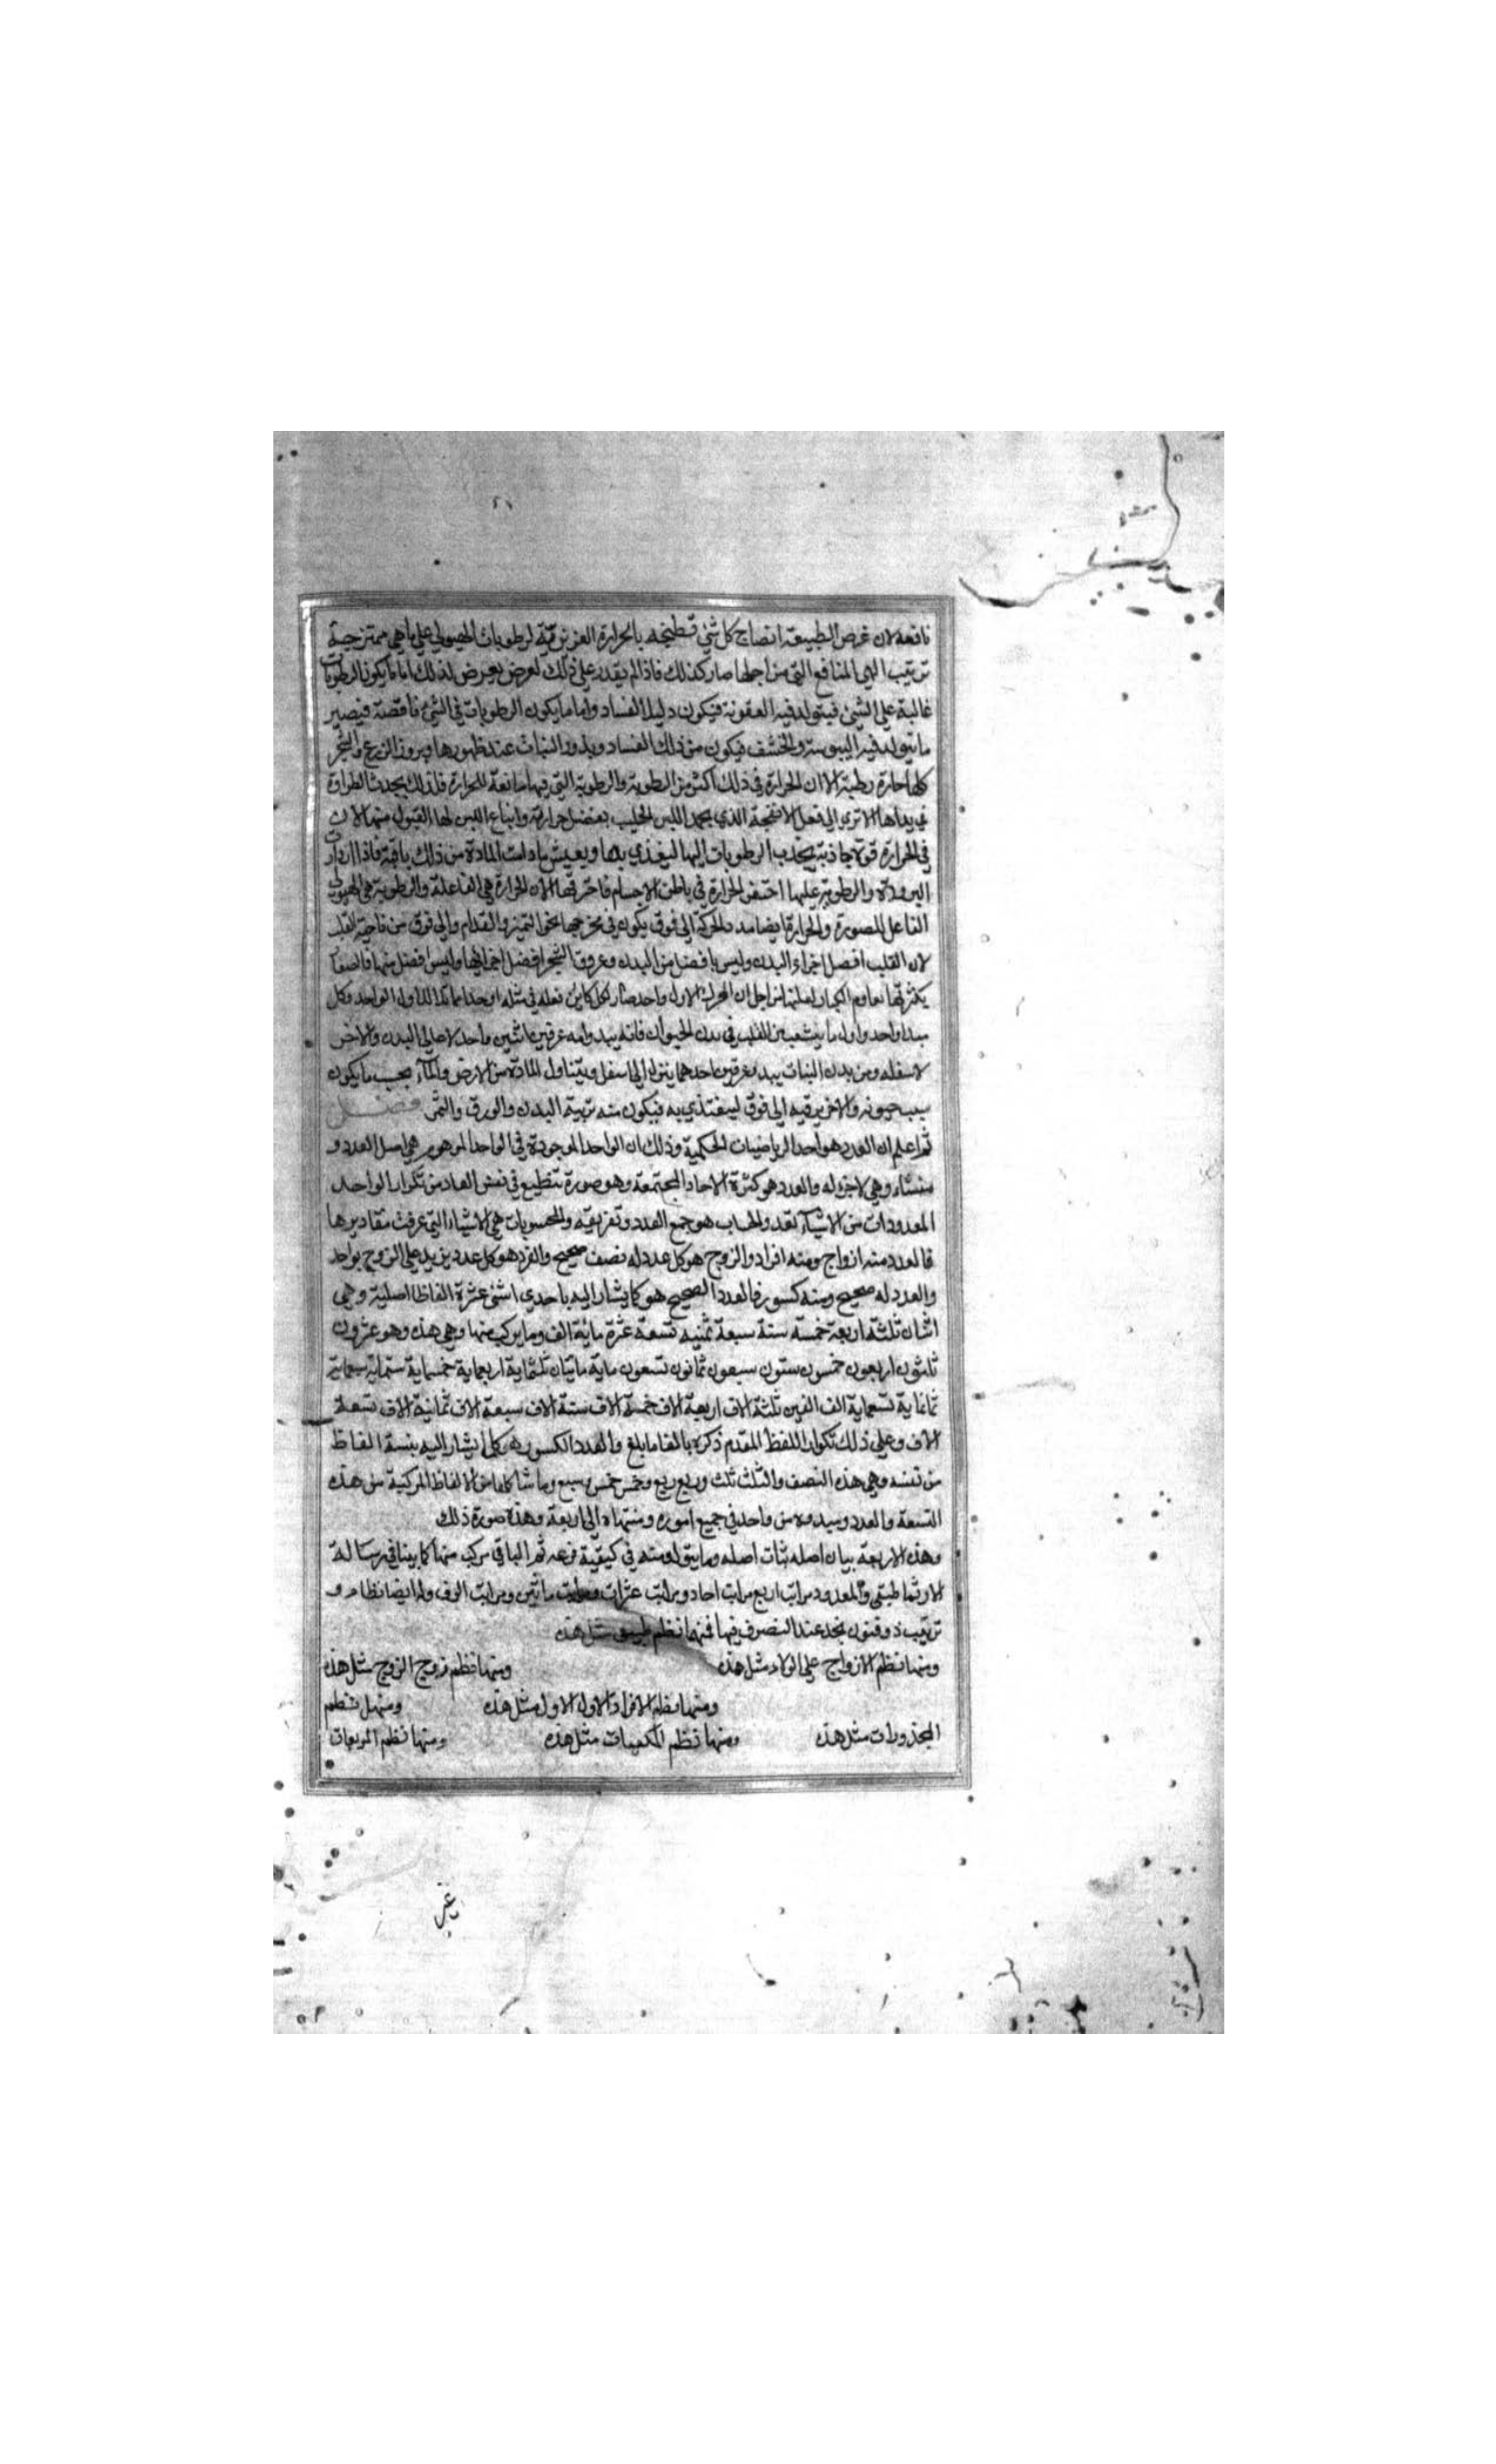 نافعة لان غرض الطبيعة انضاج كل شئ قتطبخه بالحرارة الغريزية لرطوبات الهيولي علي ما هي ممتزجة
ترتيب الي المنافع التي من اجلها صار كذلك فاذا لم يقدر علي ذلك لعرض يعرض لذلك اما ما يكون الرطوبات
غالبة علي الشئ فيتولد فيه العفونة فيكون دليلا لفساد واما ما يكون الرطوبات في الشئ ناقصة فيصير
ما يتولد فيه اليبوسة والخشف فيكون من ذلك الفساد وبذور النبات عند ظهورها وبروز الزرع والشجر
كلها حارة رطبة الا ان الحرارة في ذلك اكثر من الرطوبة والرطوبة التي فيها مانعة للحرارة فلذلك يحدث الطراوة
في يداها الا تري الي فعل الانفحة الذي يجمد اللبن الحليب بفضل حرارته واتباع اللبن لها القبول منها لان
في الحرارة قوة جاذبة يجذب الرطوبات اليها ليغذي بها ويعيش ما دامت المادة من ذلك باقية فاذا ازدادت
البرودة والرطوبة عليها احتقن الحرارة في باطن الاجسام فاحرقتها لان الحرارة هي الفاعلة والرطوبة هي الهيولي
الفاعل للصورة والحرارة ايضا الحركة الي فوق يكون في مخرجها نحو التميز والقدام والي فوق من ناحية القلب
لان القلب افضل اجزاء البدن وليس بافضل من البدن وعروق الشجر افضل اجزائها وليس افضل منها
لعلتها من اجل ان المحرك الاول واحد صار لكل كاين فعله في مثله الاول الواحد وكل
مبدا واحد واول ما يتشعب من القلب في بدن الحيوان فانه يبدوا منه عرقين اثنين واحد لاعالي البدن والاخر
لاسفله ومن بدن النبات يبدو عرقين احدهما ينزل الي اسفل ويتناول المادة من الارض والماء بحسب ما يكون
سبب حيوته والاخر يرقيه الي فوق ليغتذي به فيكون منه تربية البدن والورق والثمر فصل
ثم اعلم ان العدد هو احد الرياضيات الحكمية وذلك ان الواحد الموجودة في الواحد هي اصل العدد و
منشاه وهي لا جزء له والعدد هو كثرة الاحاد المجتمعة وهو صورة تنطبع في نفس العاد من تكرار الواحد
المعدودات من الاشياء تعد والحساب هو جمع العدد وتفريقه والمحسوبات هي الاشياء التي عرفت مقاديرها
فالعدد منه ازواج ومنه افراد والزوج هو كل عدد له نصف صحيح والفرد هو كل عدد يزيد علي الزوج بواحد
والعدد له صحيح ومنه كسور فالعدد الصحيح هو كما يشار اليه باحدي اثني عشرة الفاظا اصلية وهي
اثنان ثلثة اربعة خمسة ستة سبعة ثمنيه تسعة عشرة ماية الف وما يركب منها وهي هذه وهو عشرون
ثلثون اربعون خمسون ستون سبعون ثمانون تسعون ماية مايتان ثلثماية اربعماية خمسماية ستماية سبعماية
ثمانماية تسعماية الف الفين ثلثة الاف اربعة الاف خمسة الاف ستة الاف سبعة الاف ثمانية الاف تسعة
الاف وعلي ذلك تكرار اللفظ المقدم ذكره بالغا ما بلغ والعدد الكسور هو كما يشار اليه بتسة الفاظ
من تسنه وهي هذه النصف والثلث ثلث وربع ربع وخمس خمس وسبع وما شاكلها من الالفاظ المركبة من هذه
التسعة والعدد ومبدوه من واحد في جميع اموره ومنتهاه الي اربعة وهذه صورة ذلك
وهذه الاربعة بيان اصله ثبات اصله وما يتولد منه في كيفية فرعه ثم الباقي مركب منها كما بينا في رسالة
الارثماطيقي والمعدود مراتب اربع مراتب احاد ومراتب عشرات ومراتب ماتين ومراتب الوف وله ايضا نظام و
ترتيب ذو فنون نجد عند التصرف فيها فمنها نظم طبيعي مثل هذه
ومنها نظم الازواج علي الولاء مثل هذه ومنها نظم زوج الزوج مثل هذه
ومنها نظم الافراد الاول الاول مثل هذه ومنها نظم
المجذورات مثل هذه ومنها نظم المكعبات مثل هذه ومنها نظم المربعات
غير